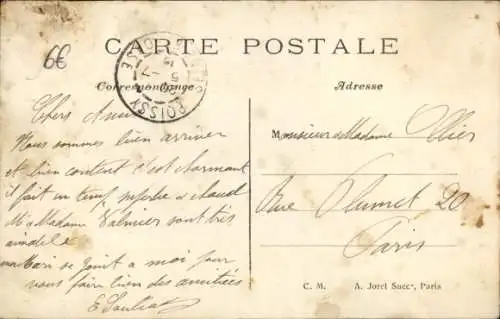 6€
CARTE POSTALE
Correspondance
Adresse
POISSY
Chers Amis
Nous sommes bien arriver
et bien content c'est charmant
il fait un temp superbe et chaud
Mr et Madame Valmier sont très
aimable
mon Mari se joint a moi pour
vous faire bien des amitiées
Monsieur et Madame Ollier
Rue Plumet 20
Paris
C. M. A. Jorel Succr, Paris